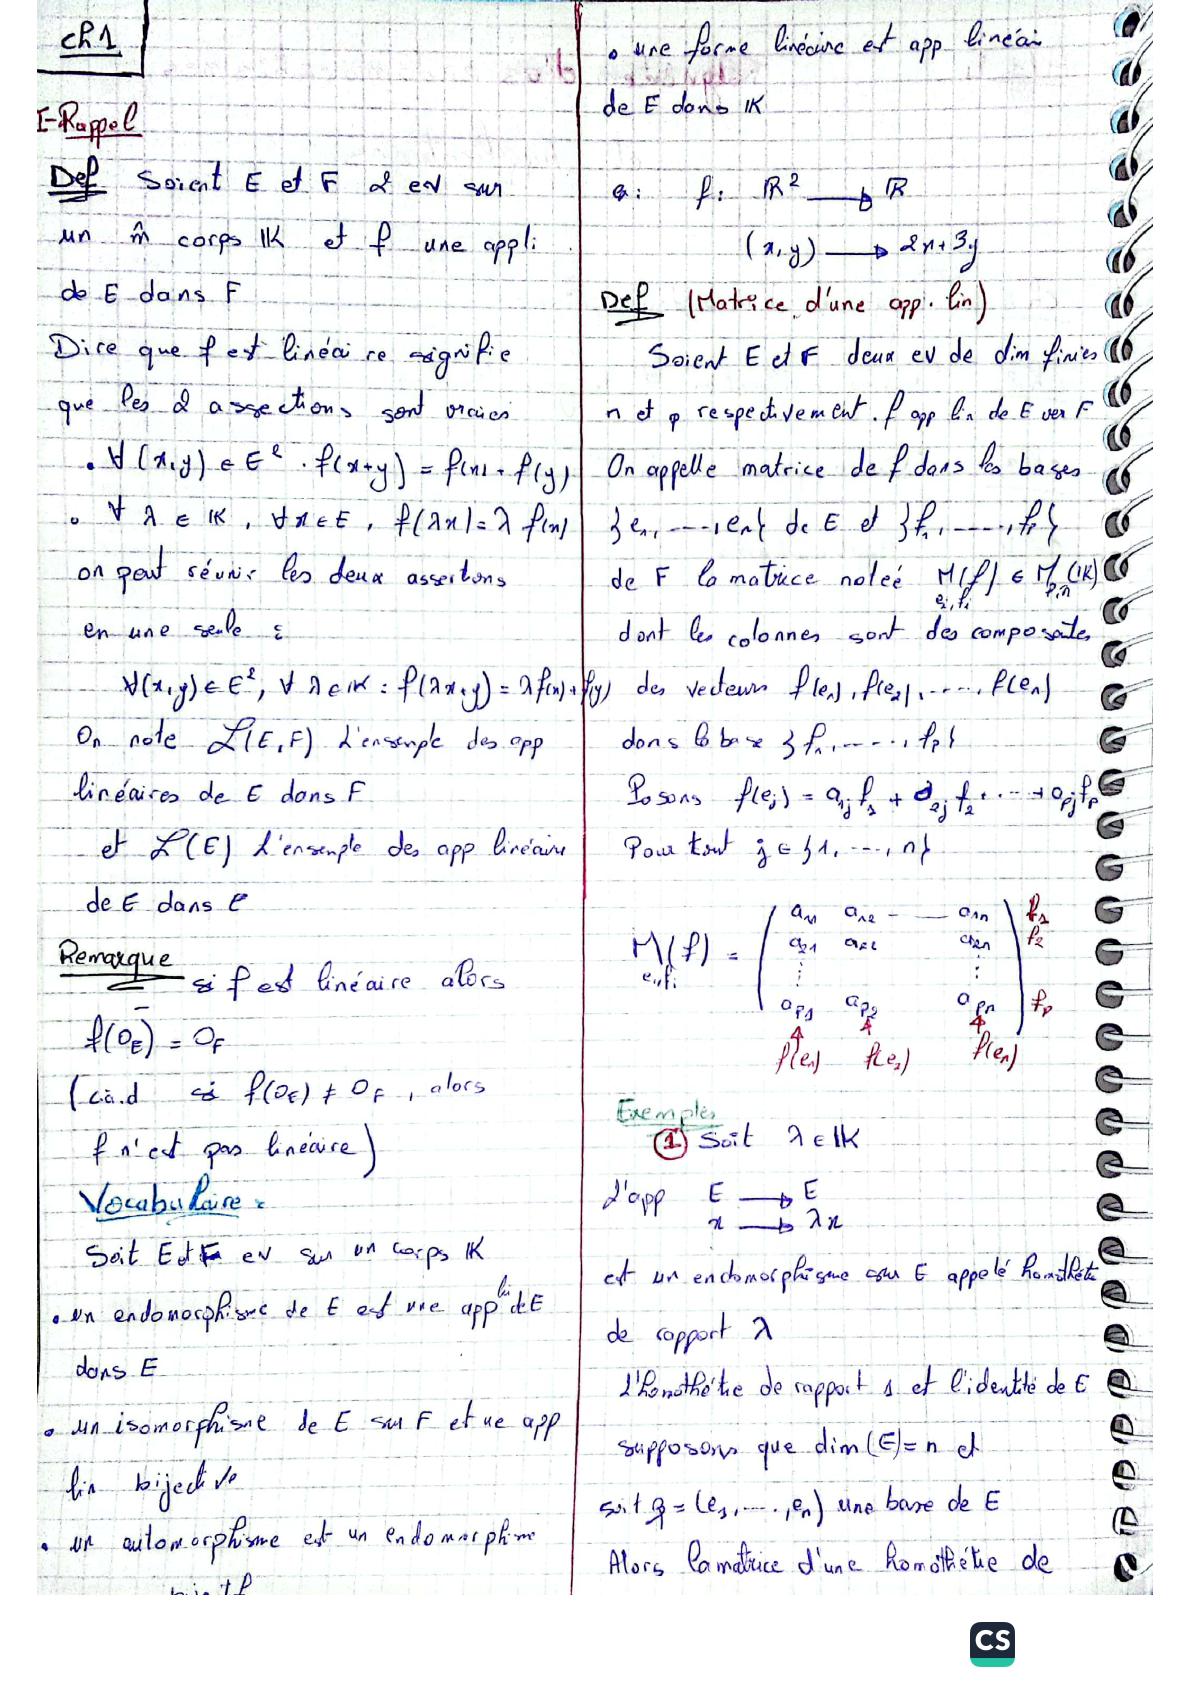 ch1
I-Rappel
Def Soient E et F 2 ev sur
un m̂ corps IK et f une appli.
de E dans F
Dire que f est linéaire signifie
que les 2 assections sont vraies
• ∀(x,y) ∈ E² . f(x+y) = f(x) + f(y)
• ∀ λ ∈ IK, ∀x∈E, f(λx) = λ f(x)
on peut réunir les deux assertions
en une seule :
∀(x,y) ∈ E², ∀ λ ∈ IK : f(λx+y) = λf(x) + f(y)
On note ℒ(E,F) L'ensemple des app
linéaires de E dans F
et ℒ(E) L'ensemple des app linéaire
de E dans E
Remarque si f est linéaire alors
f(0_E) = 0_F
(c.à.d si f(0_E) ≠ 0_F, alors
f n'est pas linéaire)
Vocabulaire :
Soit E et F ev sur un corps IK
• un endomorphisme de E est une app li de E
dans E
• un isomorphisme de E sur F et ue app
lin bijective
• un automorphisme est un endomorphime
• une forme linéaire est app linéai
de E dans IK
f: IR² → IR
(x,y) → 2x+3y
Def (Matrice d'une app. lin)
Soient E et F deux ev de dim finies
n et p respectivement. f app lin de E ver F
On appelle matrice de f dans les bases
}e₁, ----, eₙ{ de E et }f₁, ----, fₚ{
de F la matrice noteé M(f) ∈ M_p,n(IK)
eᵢ,fᵢ
dont les colonnes sont des composates
des vecteurs f(e₁), f(e₂), ----, f(eₙ)
dans la base }f₁, ----, fₚ{
Posons f(eⱼ) = a₁ⱼ f₁ + a₂ⱼ f₂ + ---- + aₚⱼ fₚ
Pour tout j ∈ }1, ---, n{
a₁₁ a₁₂ - — a₁n f₁
M(f) = a₂₁ a₂₂ a₂n f₂
eᵢ,fᵢ ⋮ ⋮
aₚ₁ aₚ₂ aₚn fₚ
f(e₁) f(e₂) f(eₙ)
Exemples
① Soit λ ∈ IK
L'app E → E
x → λx
est un endomorphisme sur E appelé homothétie
de rapport λ
L'homothétie de rapport 1 et l'identité de E
supposons que dim(E) = n et
soit B = (e₁, ----, eₙ) une base de E
Alors la matrice d'une homothétie de
CS